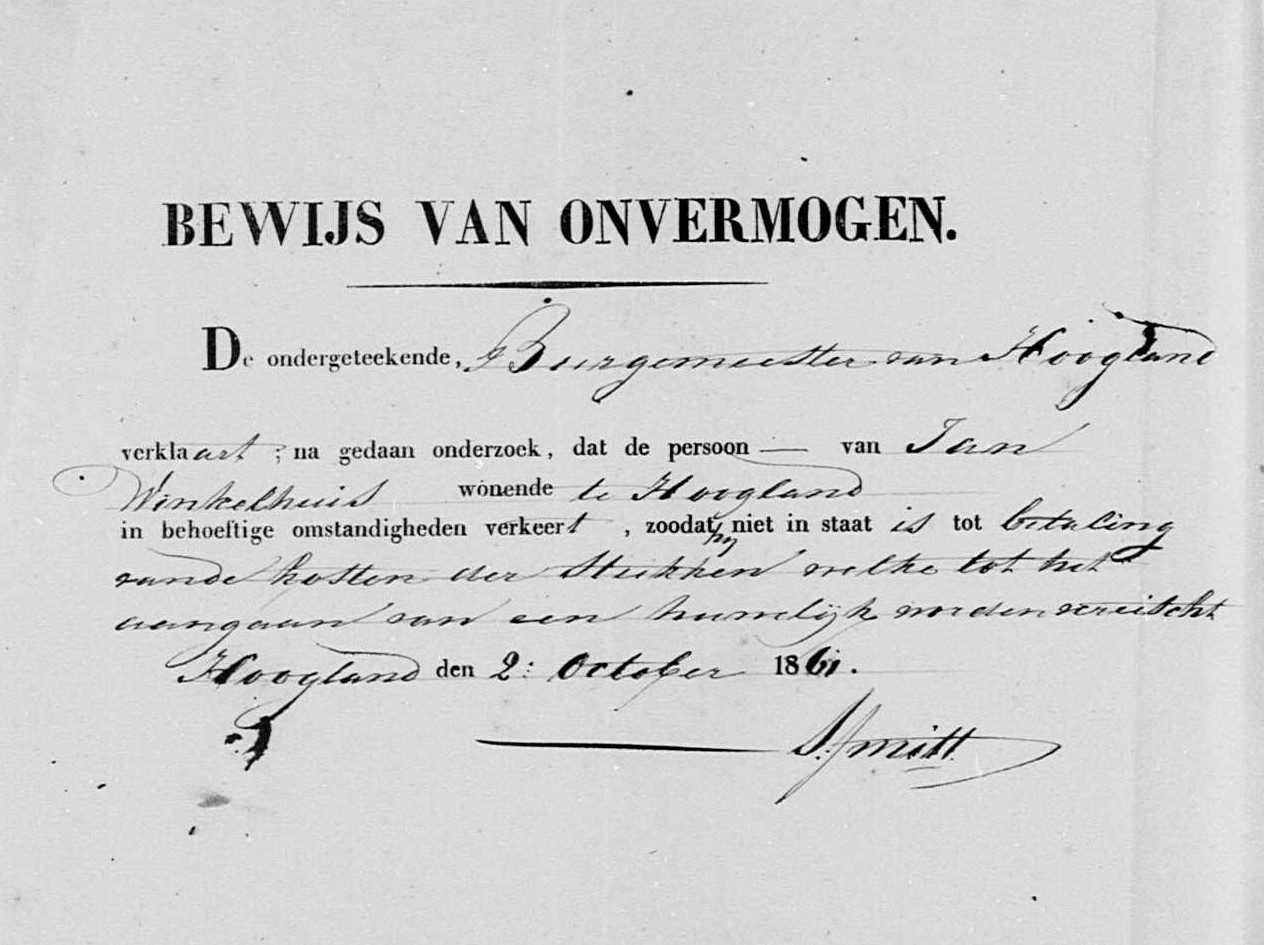 BEWIJS VAN ONVERMOGEN.
De ondergeteekende, Burgemeester van Hoogland
verklaart ; na gedaan onderzoek, dat de persoon — van Jan
Winkelhuis wonende te Hoogland
in behoeftige omstandigheden verkeert , zoodat hy niet in staat is tot betaling
vande kosten der Stukken welke tot het
aangaan van een huwelijk worden vereischt
Hoogland den 2: October 1861.
S. Smitt